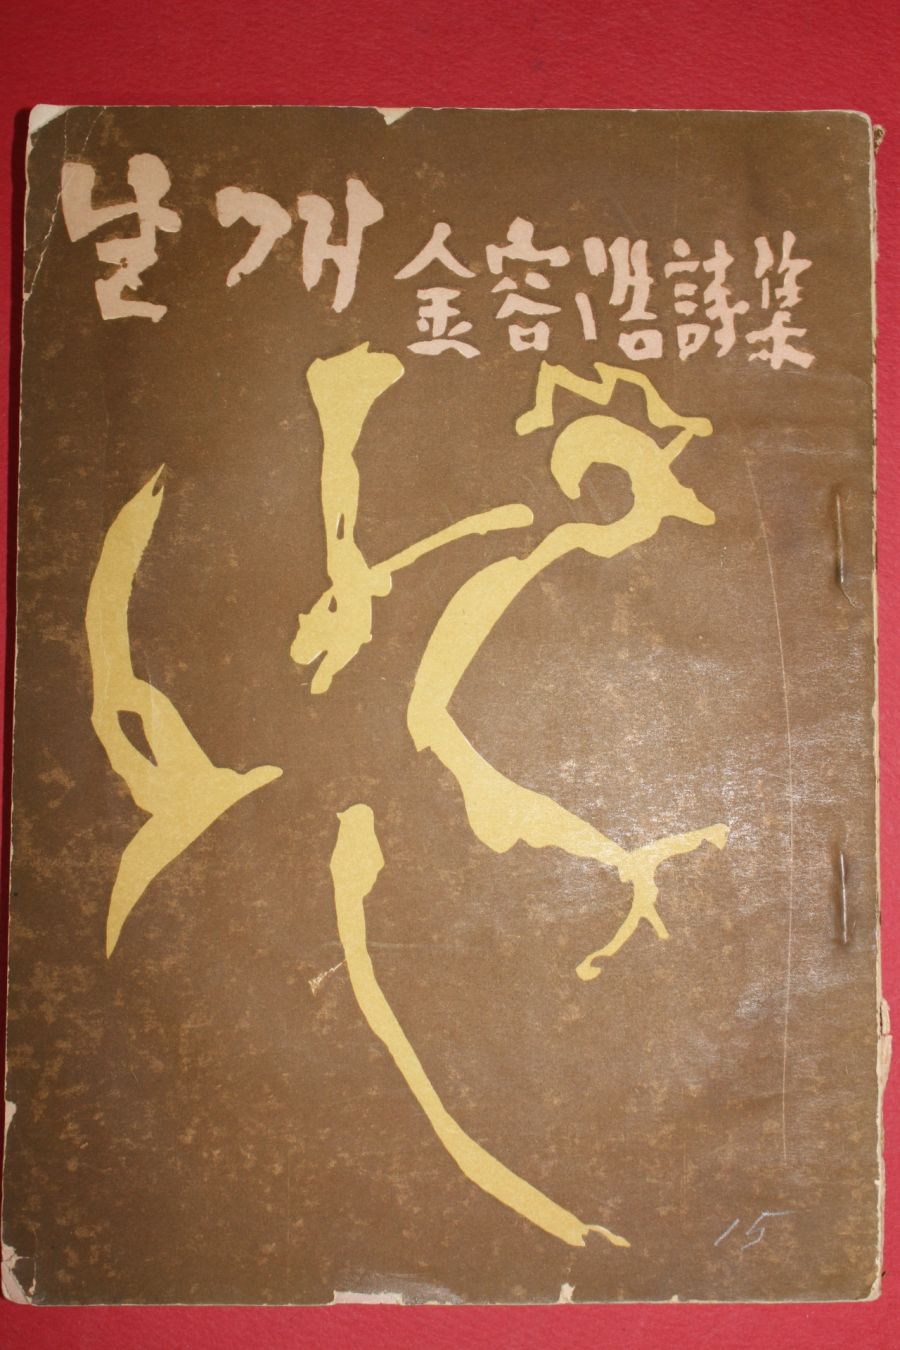 날개 金容浩詩集
15